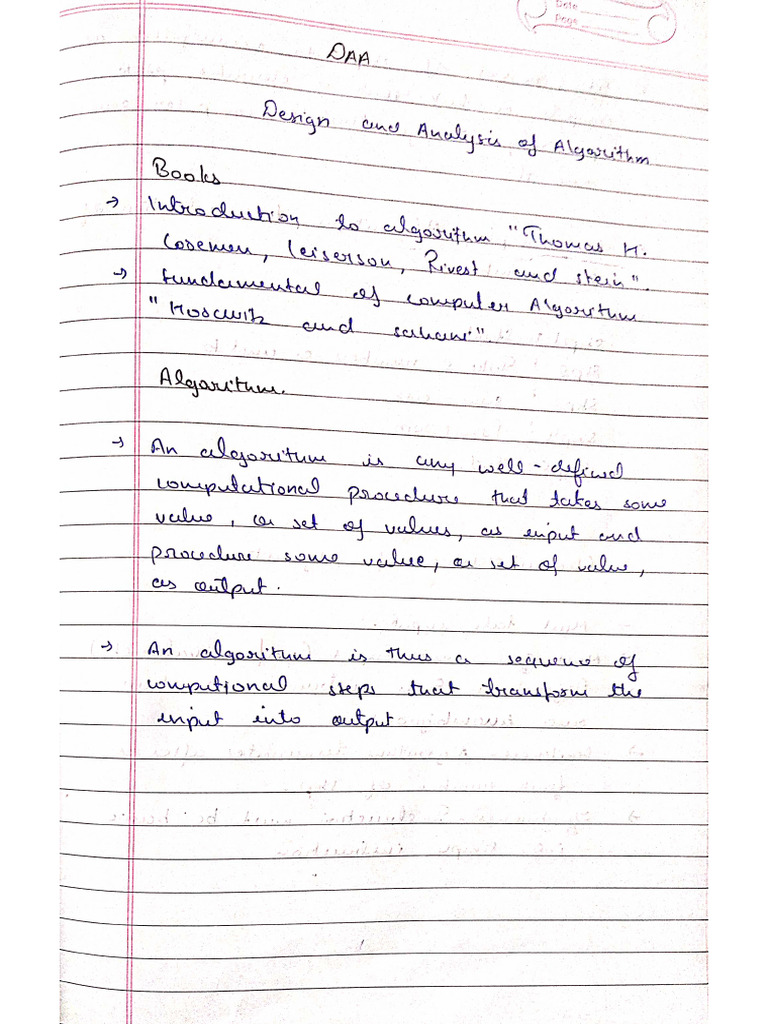 Date
Page
DAA
Design and Analysis of Algorithm
Books
→ Introduction to algorithm "Thomas H.
Coremen, Leiserson, Rivest and stein".
→ fundamental of computer Algorithm
"Horowitz and sahani".
Algorithm.
→ An algorithm is any well-defined
computational procedure that takes some
value, or set of values, as input and
procedure some value, or set of value,
as output.
→ An algorithm is thus a sequence of
computional steps that transform the
input into output